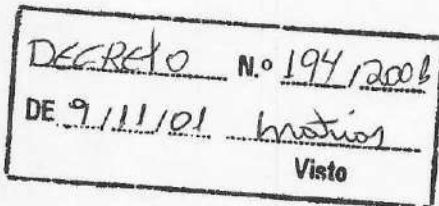 DECRETO N.º 194/2001
DE 9/11/01
Visto